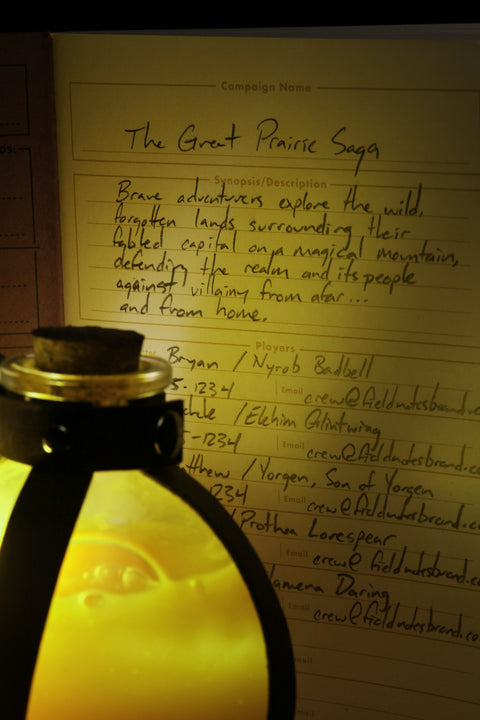 Campaign Name
The Great Prairie Saga
Synopsis/Description
Brave adventurers explore the wild,
forgotten lands surrounding their
fabled capital on a magical mountain,
defending the realm and its people
against villainy from afar...
and from home.
Players
Bryan / Nyrob Badbell
5-1234 Email crew@fieldnotesbrand.co
/Elchim Glintwing
-1234 Email crew@fieldnotesbrand.co
tthew /Yorgen, Son of Yorgen
1234 Email crew@fieldnotesbrand.co
/Prothea Lorespear
Email crew@fieldnotesbrand.co
Daring
Email crew@fieldnotesbrand.co
Email
Email